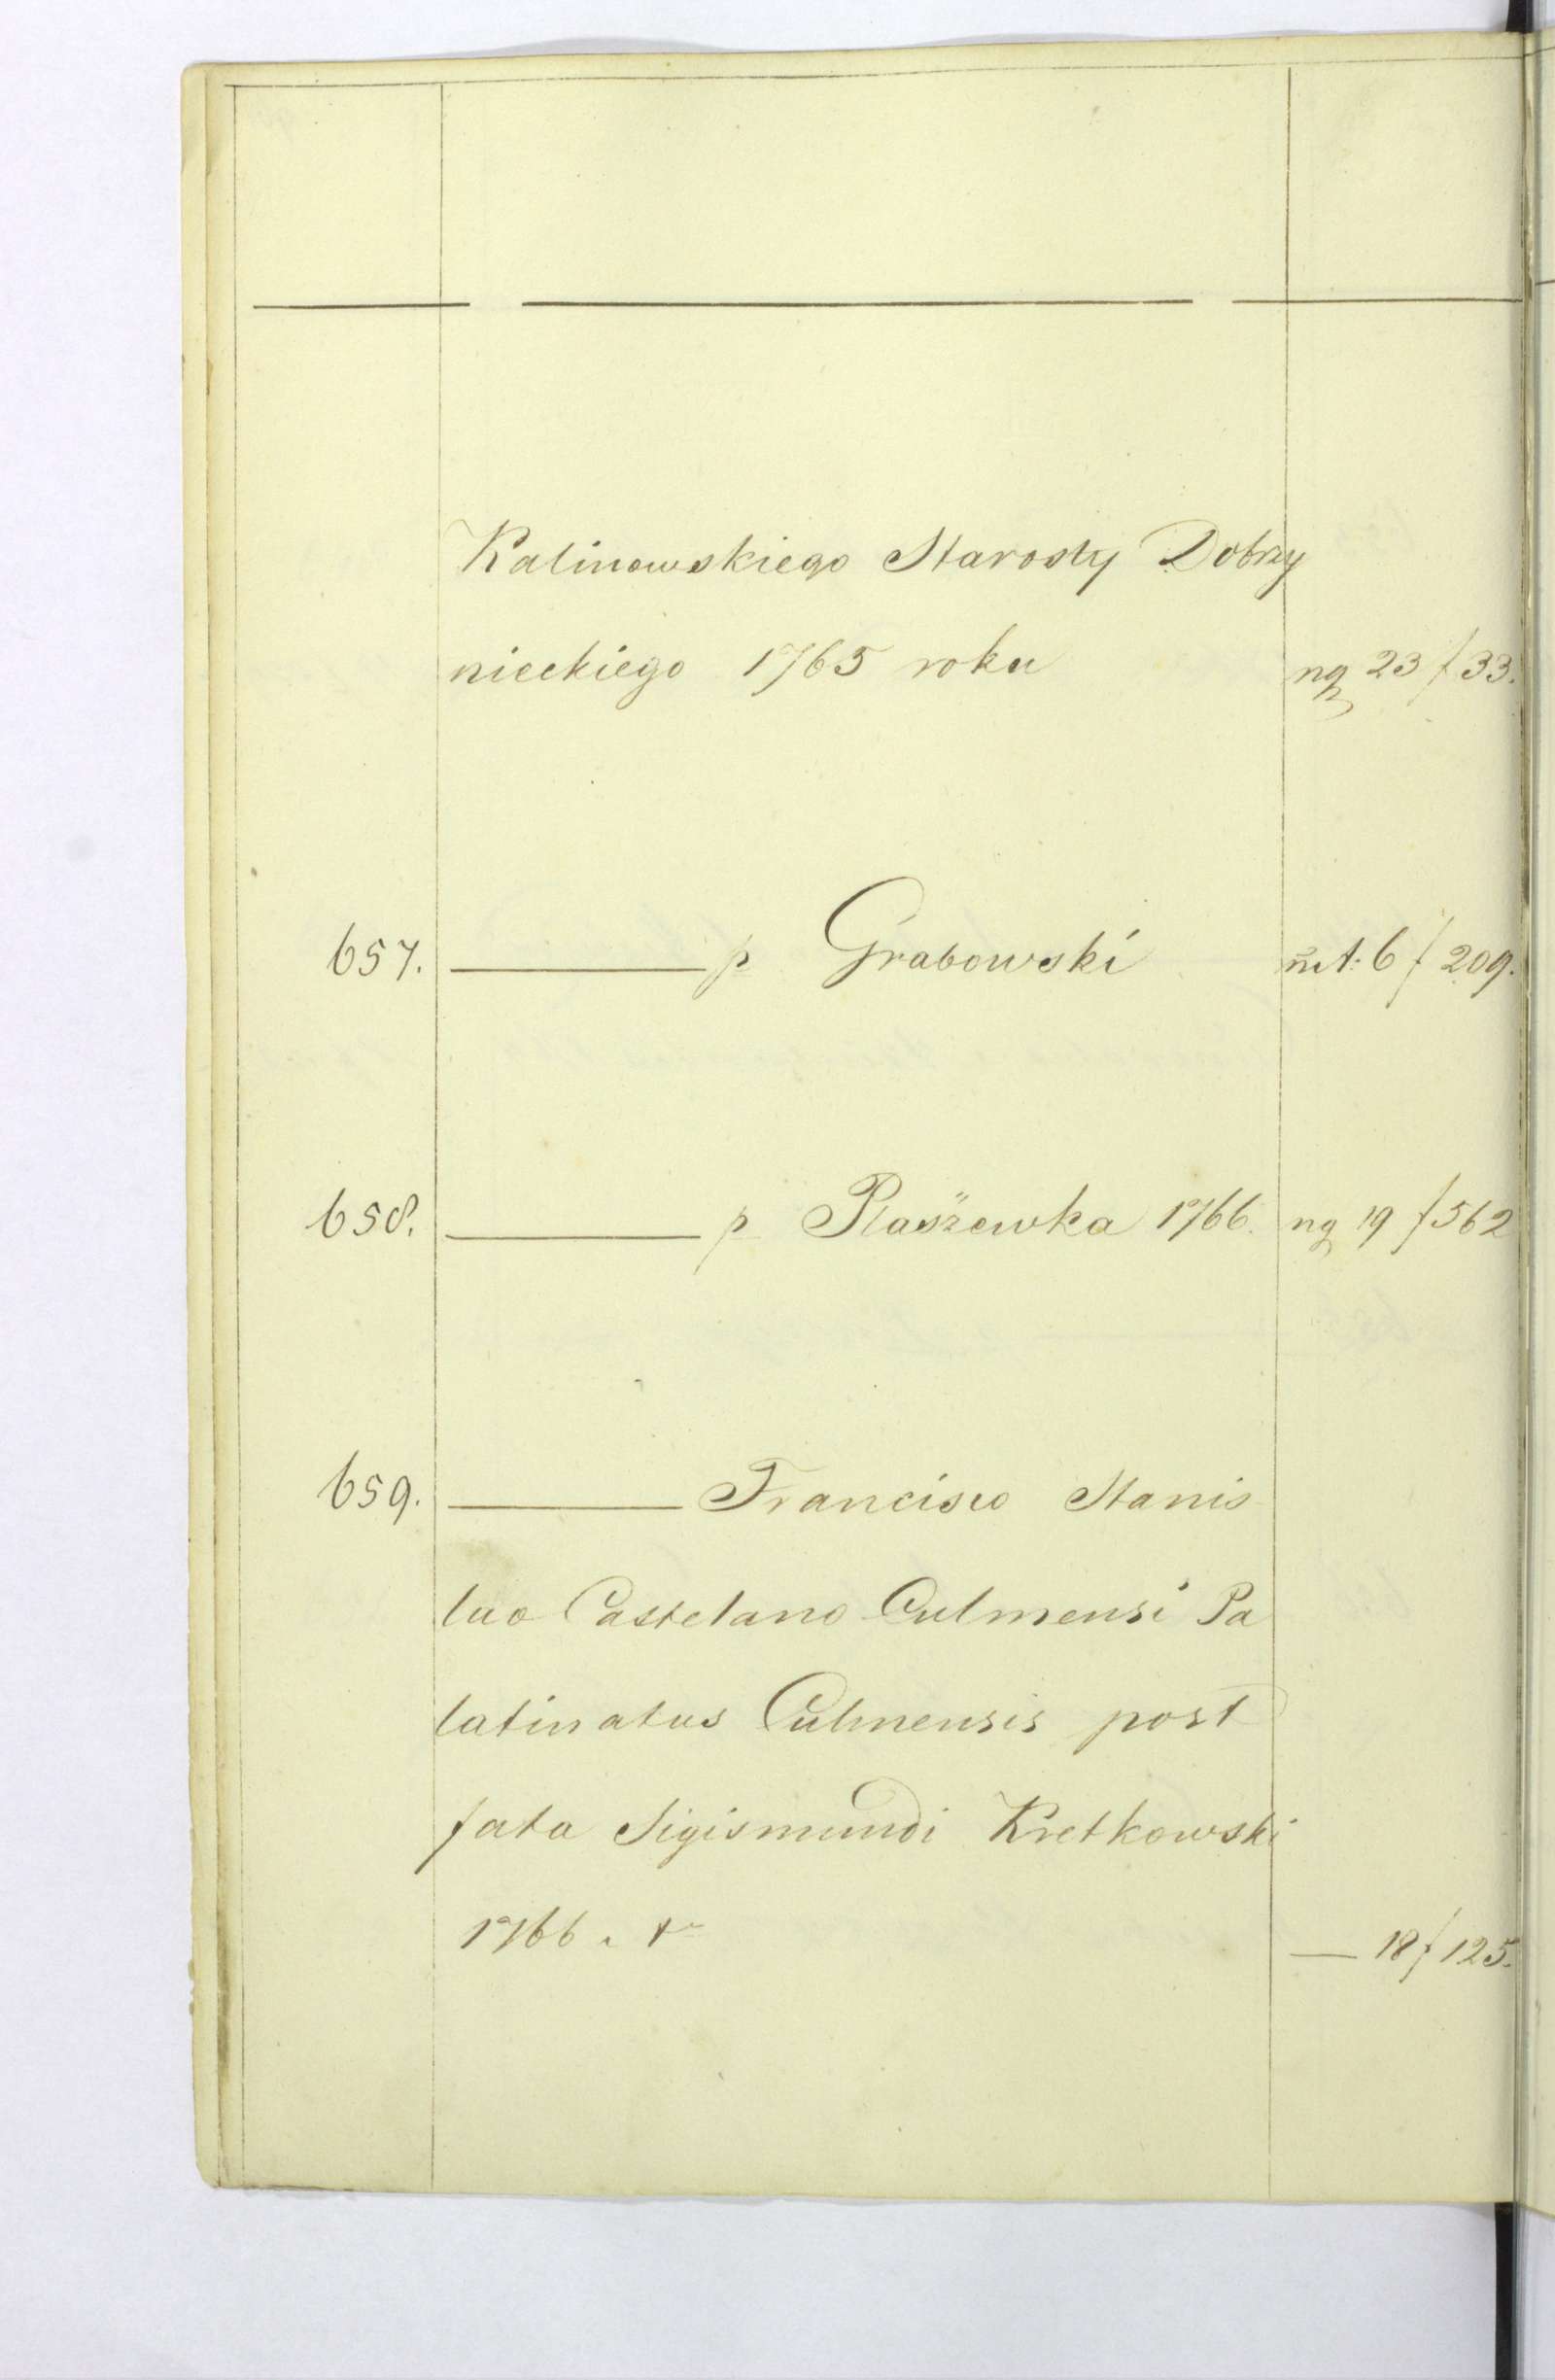 Kalinowskiego Starosty Dobrzy
nieckiego 1765 roku ng 23 f 33.
657. ——— p Grabowski mt: 6 f 209.
658. ——— p Płaszewka 1766. ng 19 f 562
659. ——— Francisco Stanis
lao Castelano Culmensi Pa
latinatus Culmensis post
fata Sigismundi Kretkowski
1766 r — 18 f 125.